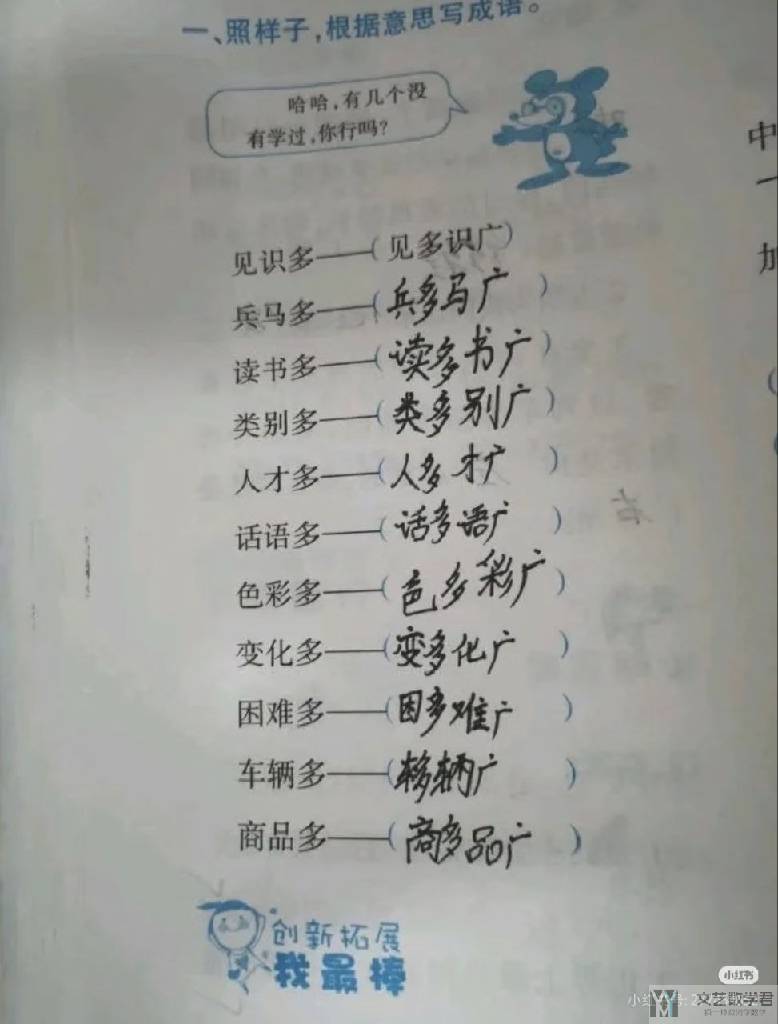 一、照样子，根据意思写成语。
哈哈，有几个没
有学过，你行吗？
见识多——（见多识广）
兵马多——（兵多马广）
读书多——（读多书广）
类别多——（类多别广）
人才多——（人多才广）
话语多——（话多语广）
色彩多——（色多彩广）
变化多——（变多化广）
困难多——（困多难广）
车辆多——（车多辆广）
商品多——（商多品广）
创新拓展
我最棒
中
一
加
右
小红书
文艺数学君